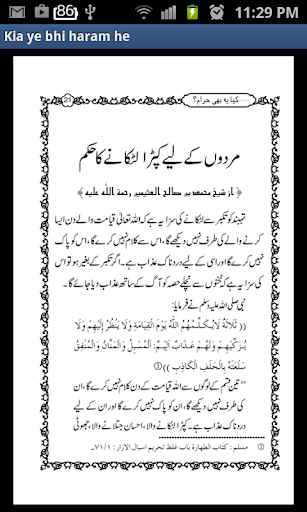 86
11:29 PM
Kia ye bhi haram he
کیا یہ بھی حرام؟
21
مردوں کے لیے کپڑا لٹکانے کا حکم
﴿از شیخ محمد بن صالح العثیمین رحمة الله علیه﴾
تہبند کو تکبر سے لٹکانے کی سزا یہ ہے کہ اللہ تعالیٰ قیامت والے دن ایسا
کرنے والے کی طرف نہیں دیکھے گا، اس سے کلام نہیں کرے گا، اس کو پاک
نہیں کرے گا اور اسی کے لیے دردناک عذاب ہے۔ اگر تکبر کے بغیر ہو تو اس
کی سزا یہ ہے کہ ٹخنوں سے نچلے حصہ کو آگ کے ساتھ عذاب دیا جائے گا۔
نبی صلی اللہ علیہ وسلم نے فرمایا:
(( ثَلَاثَةٌ لَا يُكَلِّمُهُمُ اللَّهُ يَوْمَ الْقِيَامَةِ وَلَا يَنْظُرُ إِلَيْهِمْ وَلَا
يُزَكِّيْهِمْ وَلَهُمْ عَذَابٌ أَلِيْمٌ: اَلْمُسْبِلُ وَالْمَنَّانُ وَالْمُنْفِقُ
سِلْعَتَهُ بِالْحَلِفِ الْكَاذِبِ ))①
”تین قسم کے لوگوں سے اللہ قیامت کے دن کلام نہیں کرے گا، ان کی
طرف نہیں دیکھے گا، ان کو پاک نہیں کرے گا اور ان کے لیے
دردناک عذاب ہے۔ کپڑا لٹکانے والا، احسان جتلانے والا، جھوٹی
① مسلم : كتاب الطهارة باب غلظ تحريم اسبال الازار : ٧١/١